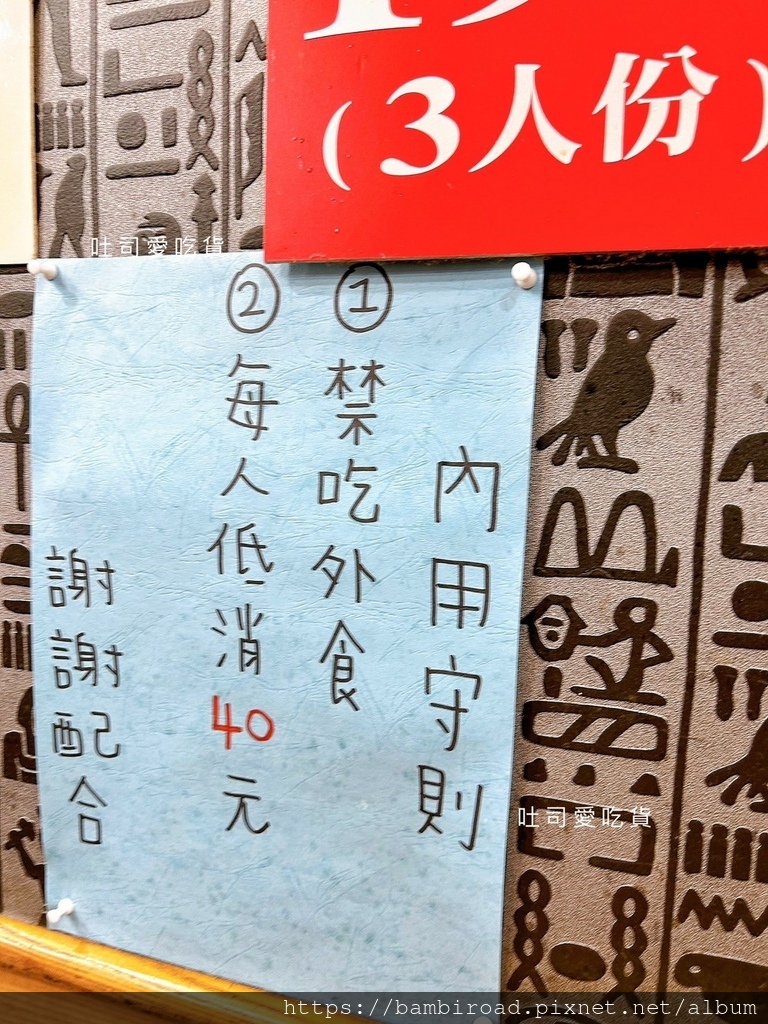 (3人份)
吐司愛吃貨
內用守則
①禁吃外食
②每人低消40元
謝謝配合
吐司愛吃貨
https://bambiroad.pixnet.net/album